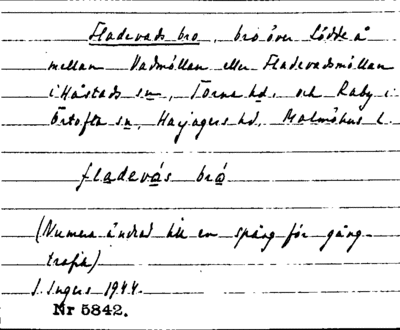 Fladevads bro, bro över Lödde å
mellan Vadmöllan eller Fladevadsmöllan
i Håstads sn, Torna hd, och Räby i
Örtofta sn, Harjagers hd, Malmöhus l.
fladevás bró
(Numera ändrad till en spång för gång-
trafik)
I. Ingers 1944.
Nr 5842.